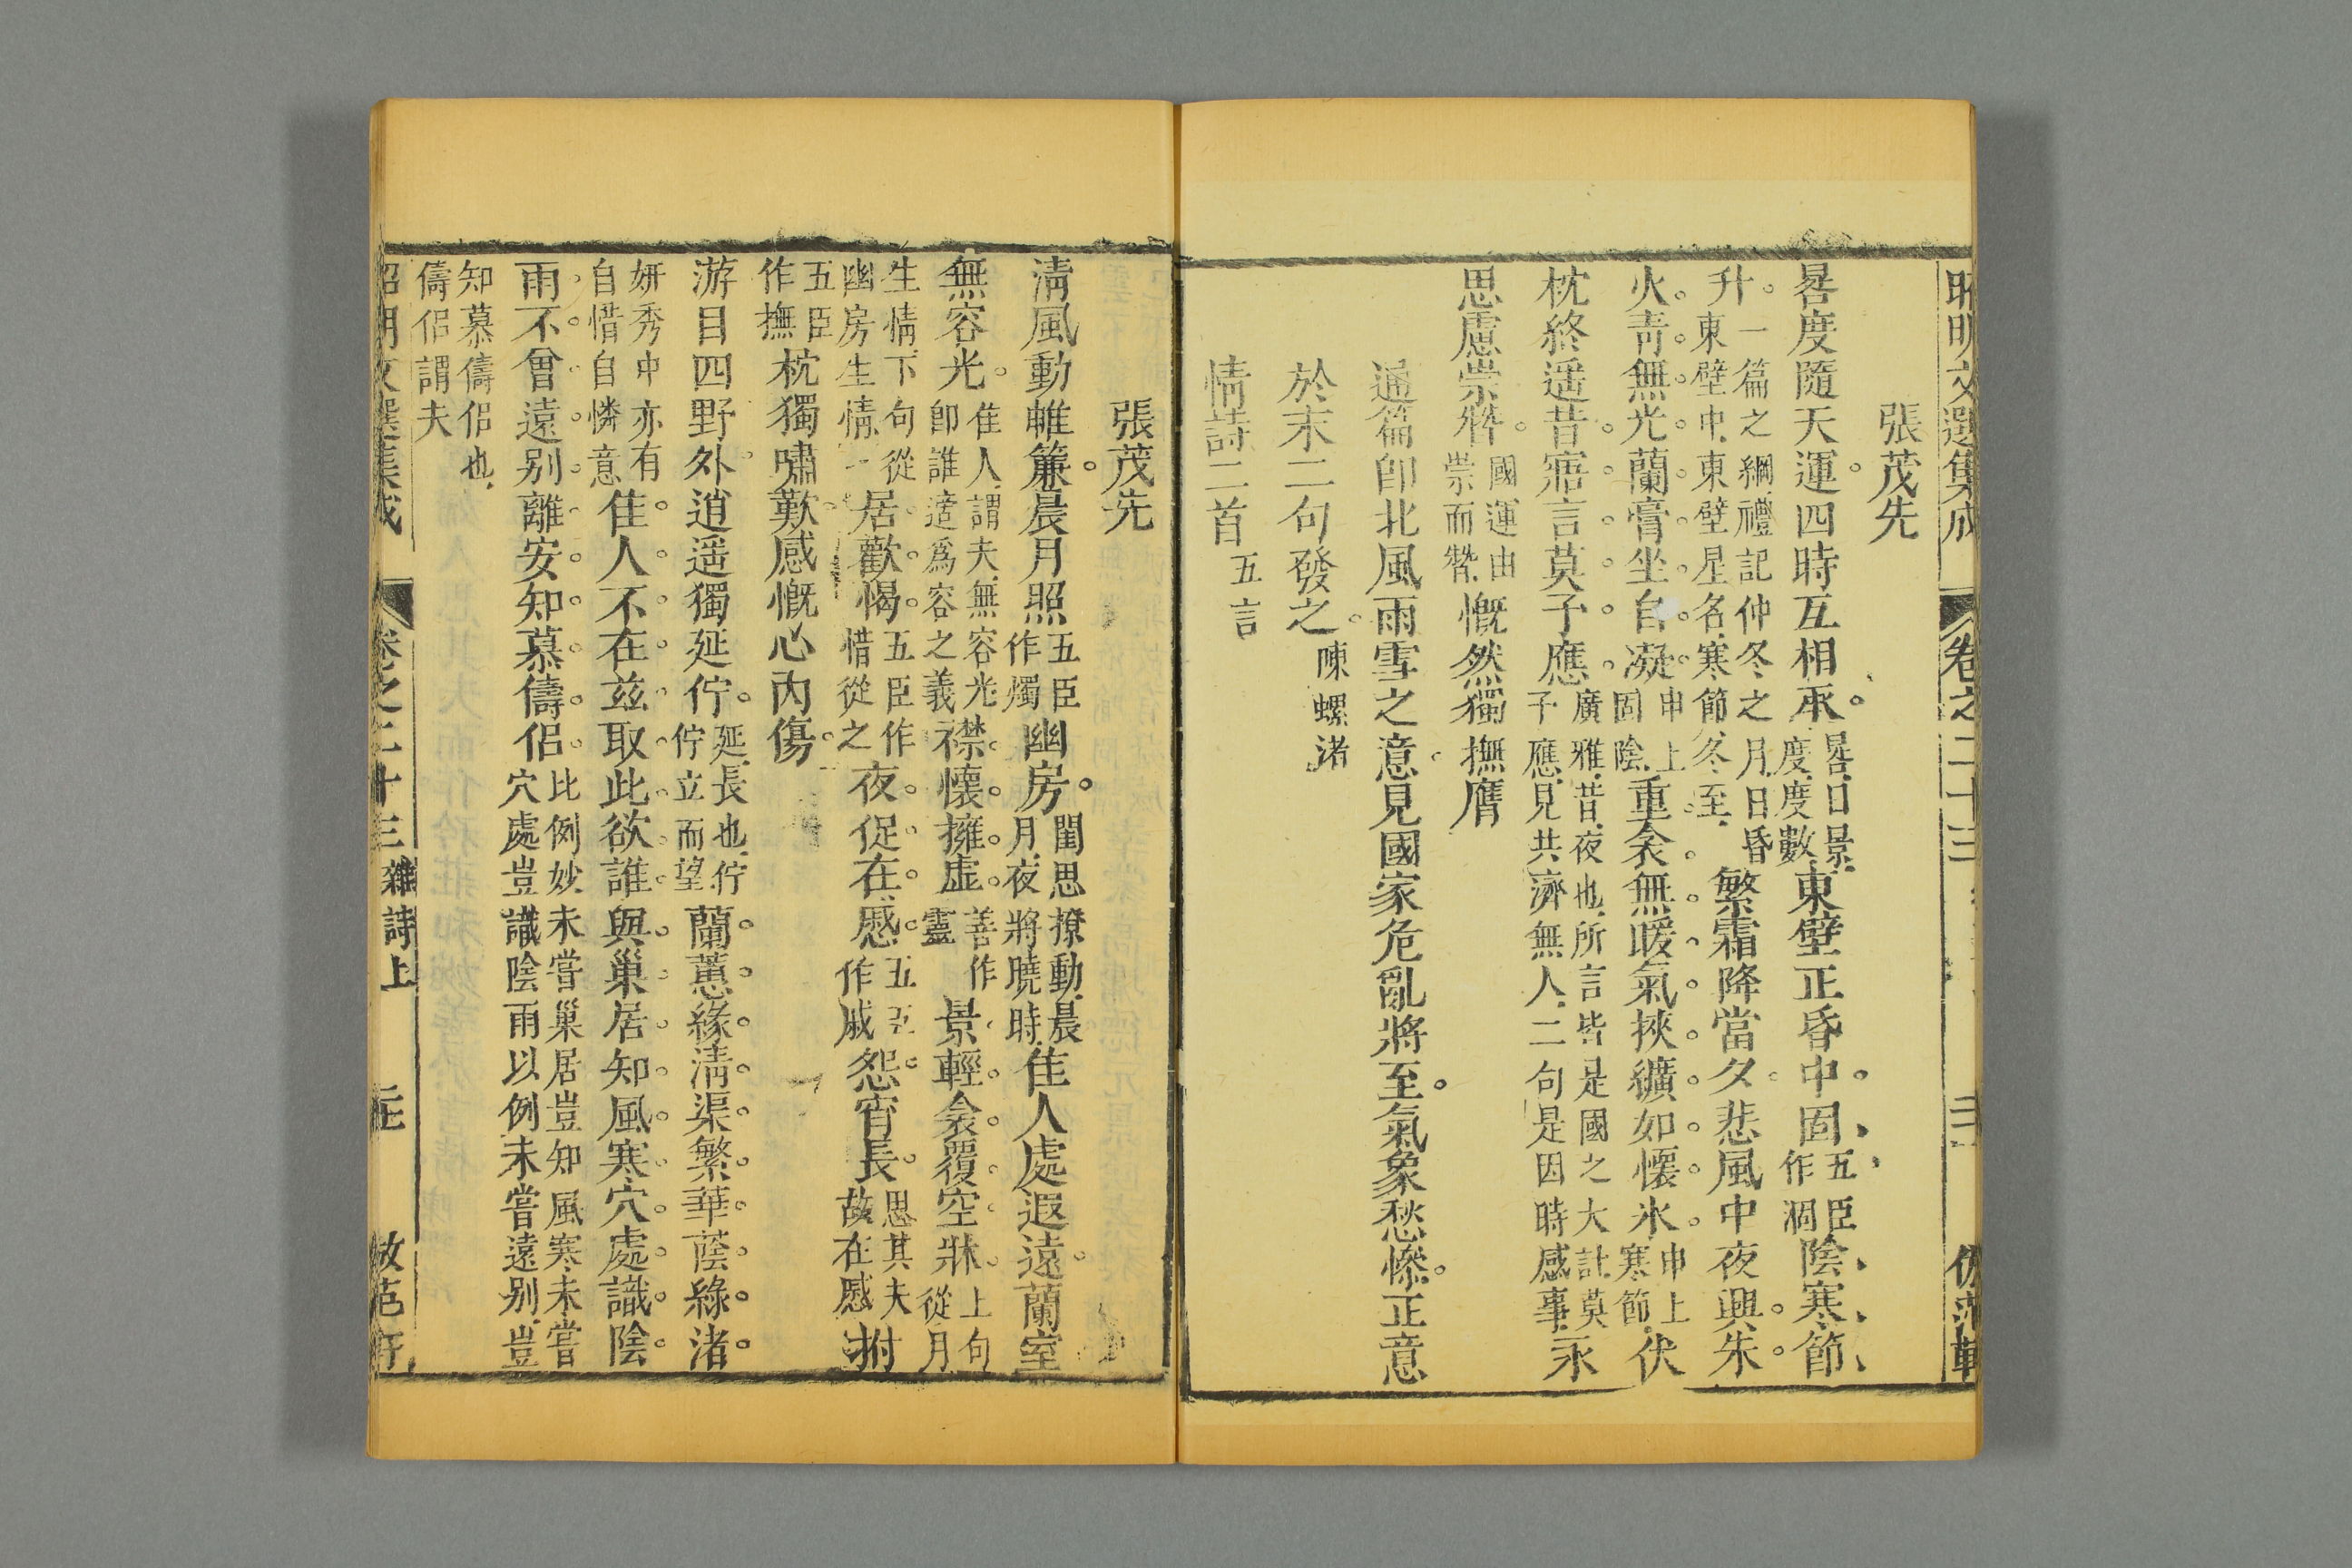 昭明文選集成 卷之二十三
張茂先
晷度隨天運四時互相承晷日景度度數東壁正昏中固五臣作涸陰寒節
升一篇之綱禮記仲冬之月日昏東壁中東壁星名寒節冬至繁霜降當夕悲風中夜興朱
火靑無光蘭膏坐自凝申上固陰重衾無暖氣挾纊如懷氷申上寒節伏
枕終遥昔寤言莫予應廣雅昔夜也所言皆是國之大計莫子應見共濟無人二句是因時感事永
思慮崇替國運由崇而替慨然獨撫膺
通篇卽北風雨雪之意見國家危亂將至氣象愁慘正意
於末二句發之陳螺渚
情詩二首五言
張茂先
淸風動帷簾晨月照五臣作燭幽房閨思撩動晨月夜將曉時佳人處遐遠蘭室
無容光佳人謂夫無容光卽誰適爲容之義襟懷擁虛善作靈景輕衾覆空牀上句從月
生情下句從幽房生情居歡愒五臣作惜從之夜促在慼五臣作戚怨宵長思其夫故在慼拊
五臣作撫枕獨嘯歎感慨心內傷
游目四野外逍遥獨延佇延長也佇佇立而望蘭蕙緣淸渠繁華蔭綠渚
妍秀中亦有自惜自憐意佳人不在茲取此欲誰與巢居知風寒穴處識陰
雨不曾遠別離安知慕儔侶比例妙未嘗巢居豈知風寒未嘗穴處豈識陰雨以例未嘗遠別豈
知慕儔侶也儔侶謂夫
昭明文選集成 卷之二十三 雜詩上